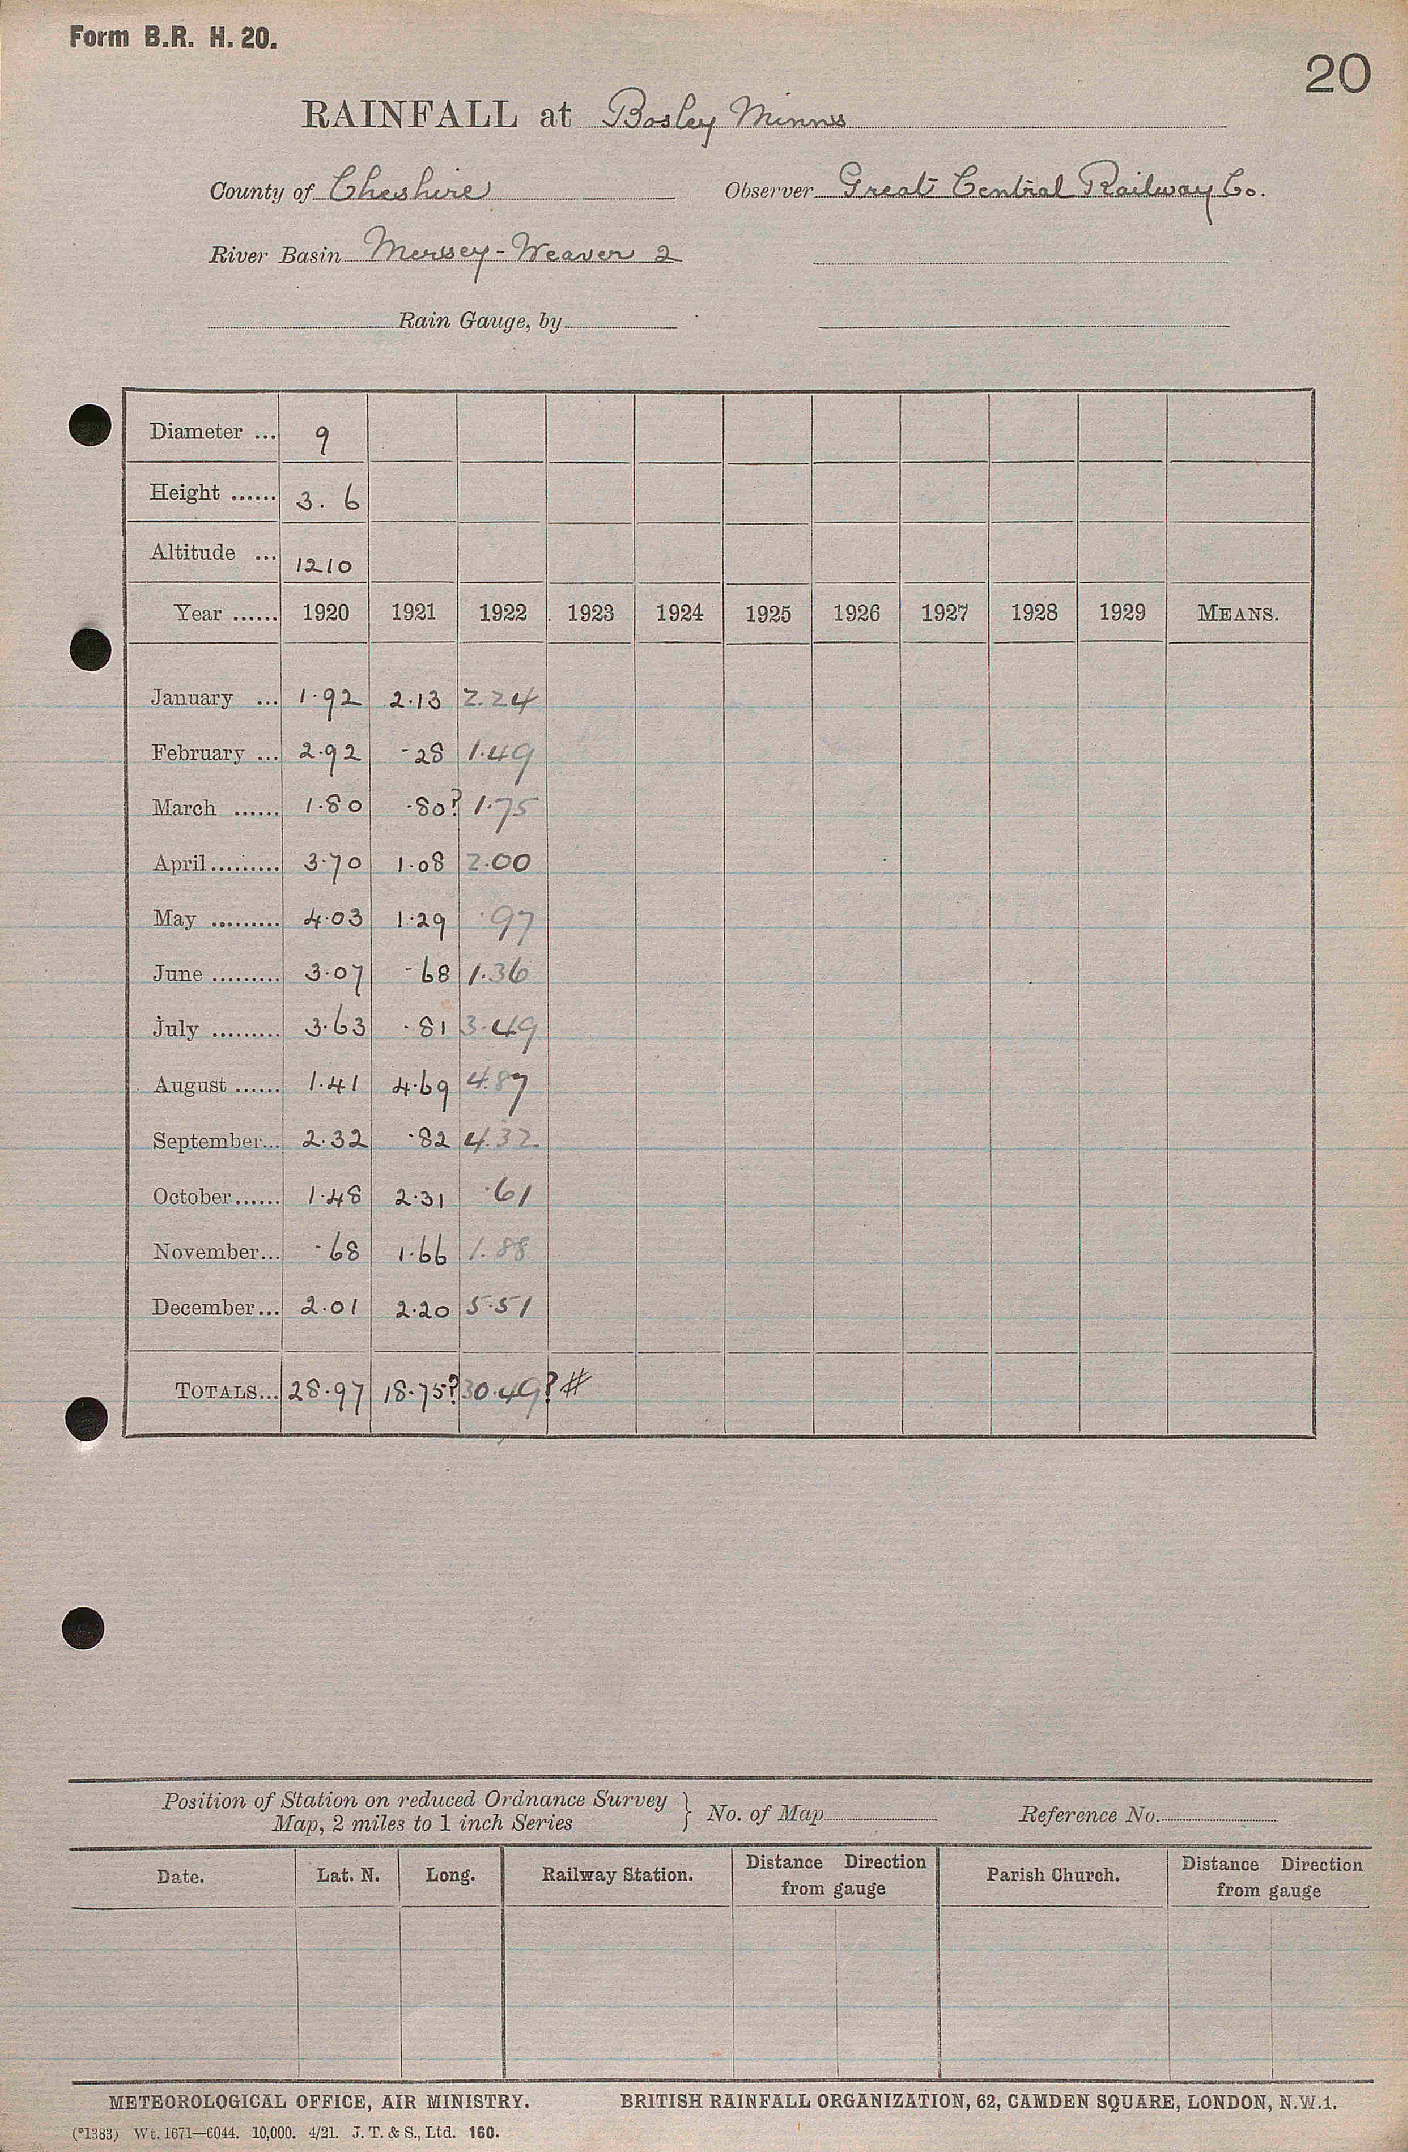 Form B.R. H. 20.
20
RAINFALL at Bosley Minns
County of Cheshire Observer Great Central Railway Co.
River Basin Mersey-Weaver 2
Rain Gauge, by
Diameter ... 9
Height ...... 3. 6
Altitude ... 1210
Year ...... 1920 1921 1922 1923 1924 1925 1926 1927 1928 1929 MEANS.
January ... 1.92 2.13 2.24
February ... 2.92 .28 1.49
March ...... 1.80 .80? 1.75
April......... 3.70 1.08 2.00
May ......... 4.03 1.29 .97
June ......... 3.07 .68 1.36
July ......... 3.63 .81 3.49
August ...... 1.41 4.69 4.87
September... 2.32 .82 4.32
October...... 1.48 2.31 .61
November... .68 1.66 1.88
December... 2.01 2.20 5.51
TOTALS... 28.97 18.75? 30.49? #
Position of Station on reduced Ordnance Survey
Map, 2 miles to 1 inch Series } No. of Map Reference No.
Date. Lat. N. Long. Railway Station. Distance Direction from gauge Parish Church. Distance Direction from gauge
METEOROLOGICAL OFFICE, AIR MINISTRY. BRITISH RAINFALL ORGANIZATION, 62, CAMDEN SQUARE, LONDON, N.W.1.
(*1383) Wt. 1671—6044. 10,000. 4/21. J. T. & S., Ltd. 160.